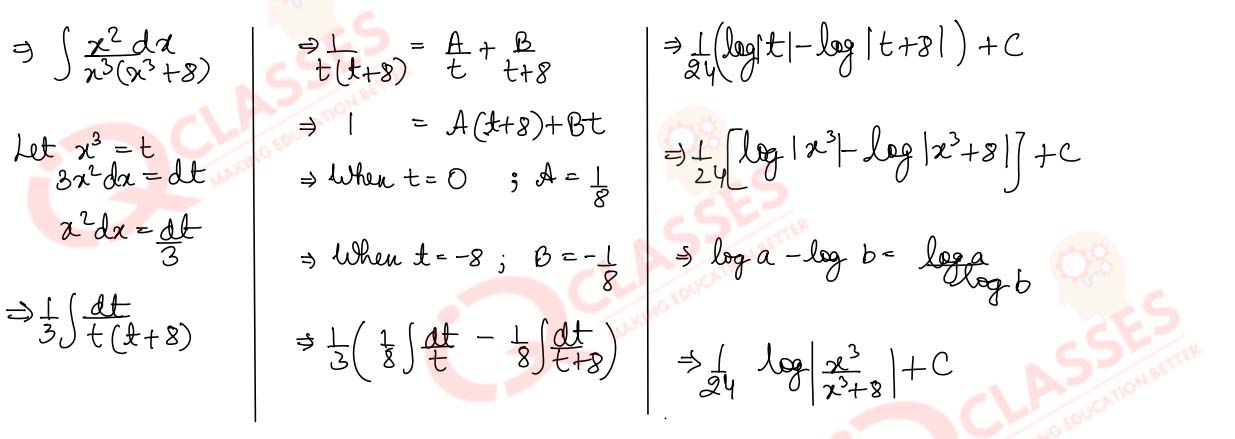 ⇒ ∫ x² dx / x³(x³+8)
Let x³ = t
3x²dx = dt
x²dx = dt/3
⇒ 1/3 ∫ dt / t(t+8)
⇒ 1/t(t+8) = A/t + B/t+8
⇒ 1 = A(t+8)+Bt
⇒ When t = 0 ; A = 1/8
⇒ When t = -8 ; B = -1/8
⇒ 1/3 ( 1/8 ∫ dt/t - 1/8 ∫ dt/t+8 )
⇒ 1/24 (log|t| - log|t+8|) + C
⇒ 1/24 [log|x³| - log|x³+8|] + C
⇒ log a - log b = log a / log b
⇒ 1/24 log |x³/x³+8| + C
CLASSES
MAKING EDUCATION BETTER
CLASSES
MAKING EDUCATION BETTER
CLASSES
MAKING EDUCATION BETTER